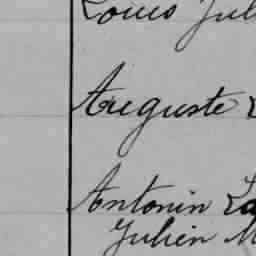 Louis Jul
Auguste
Antonin La
Julien M